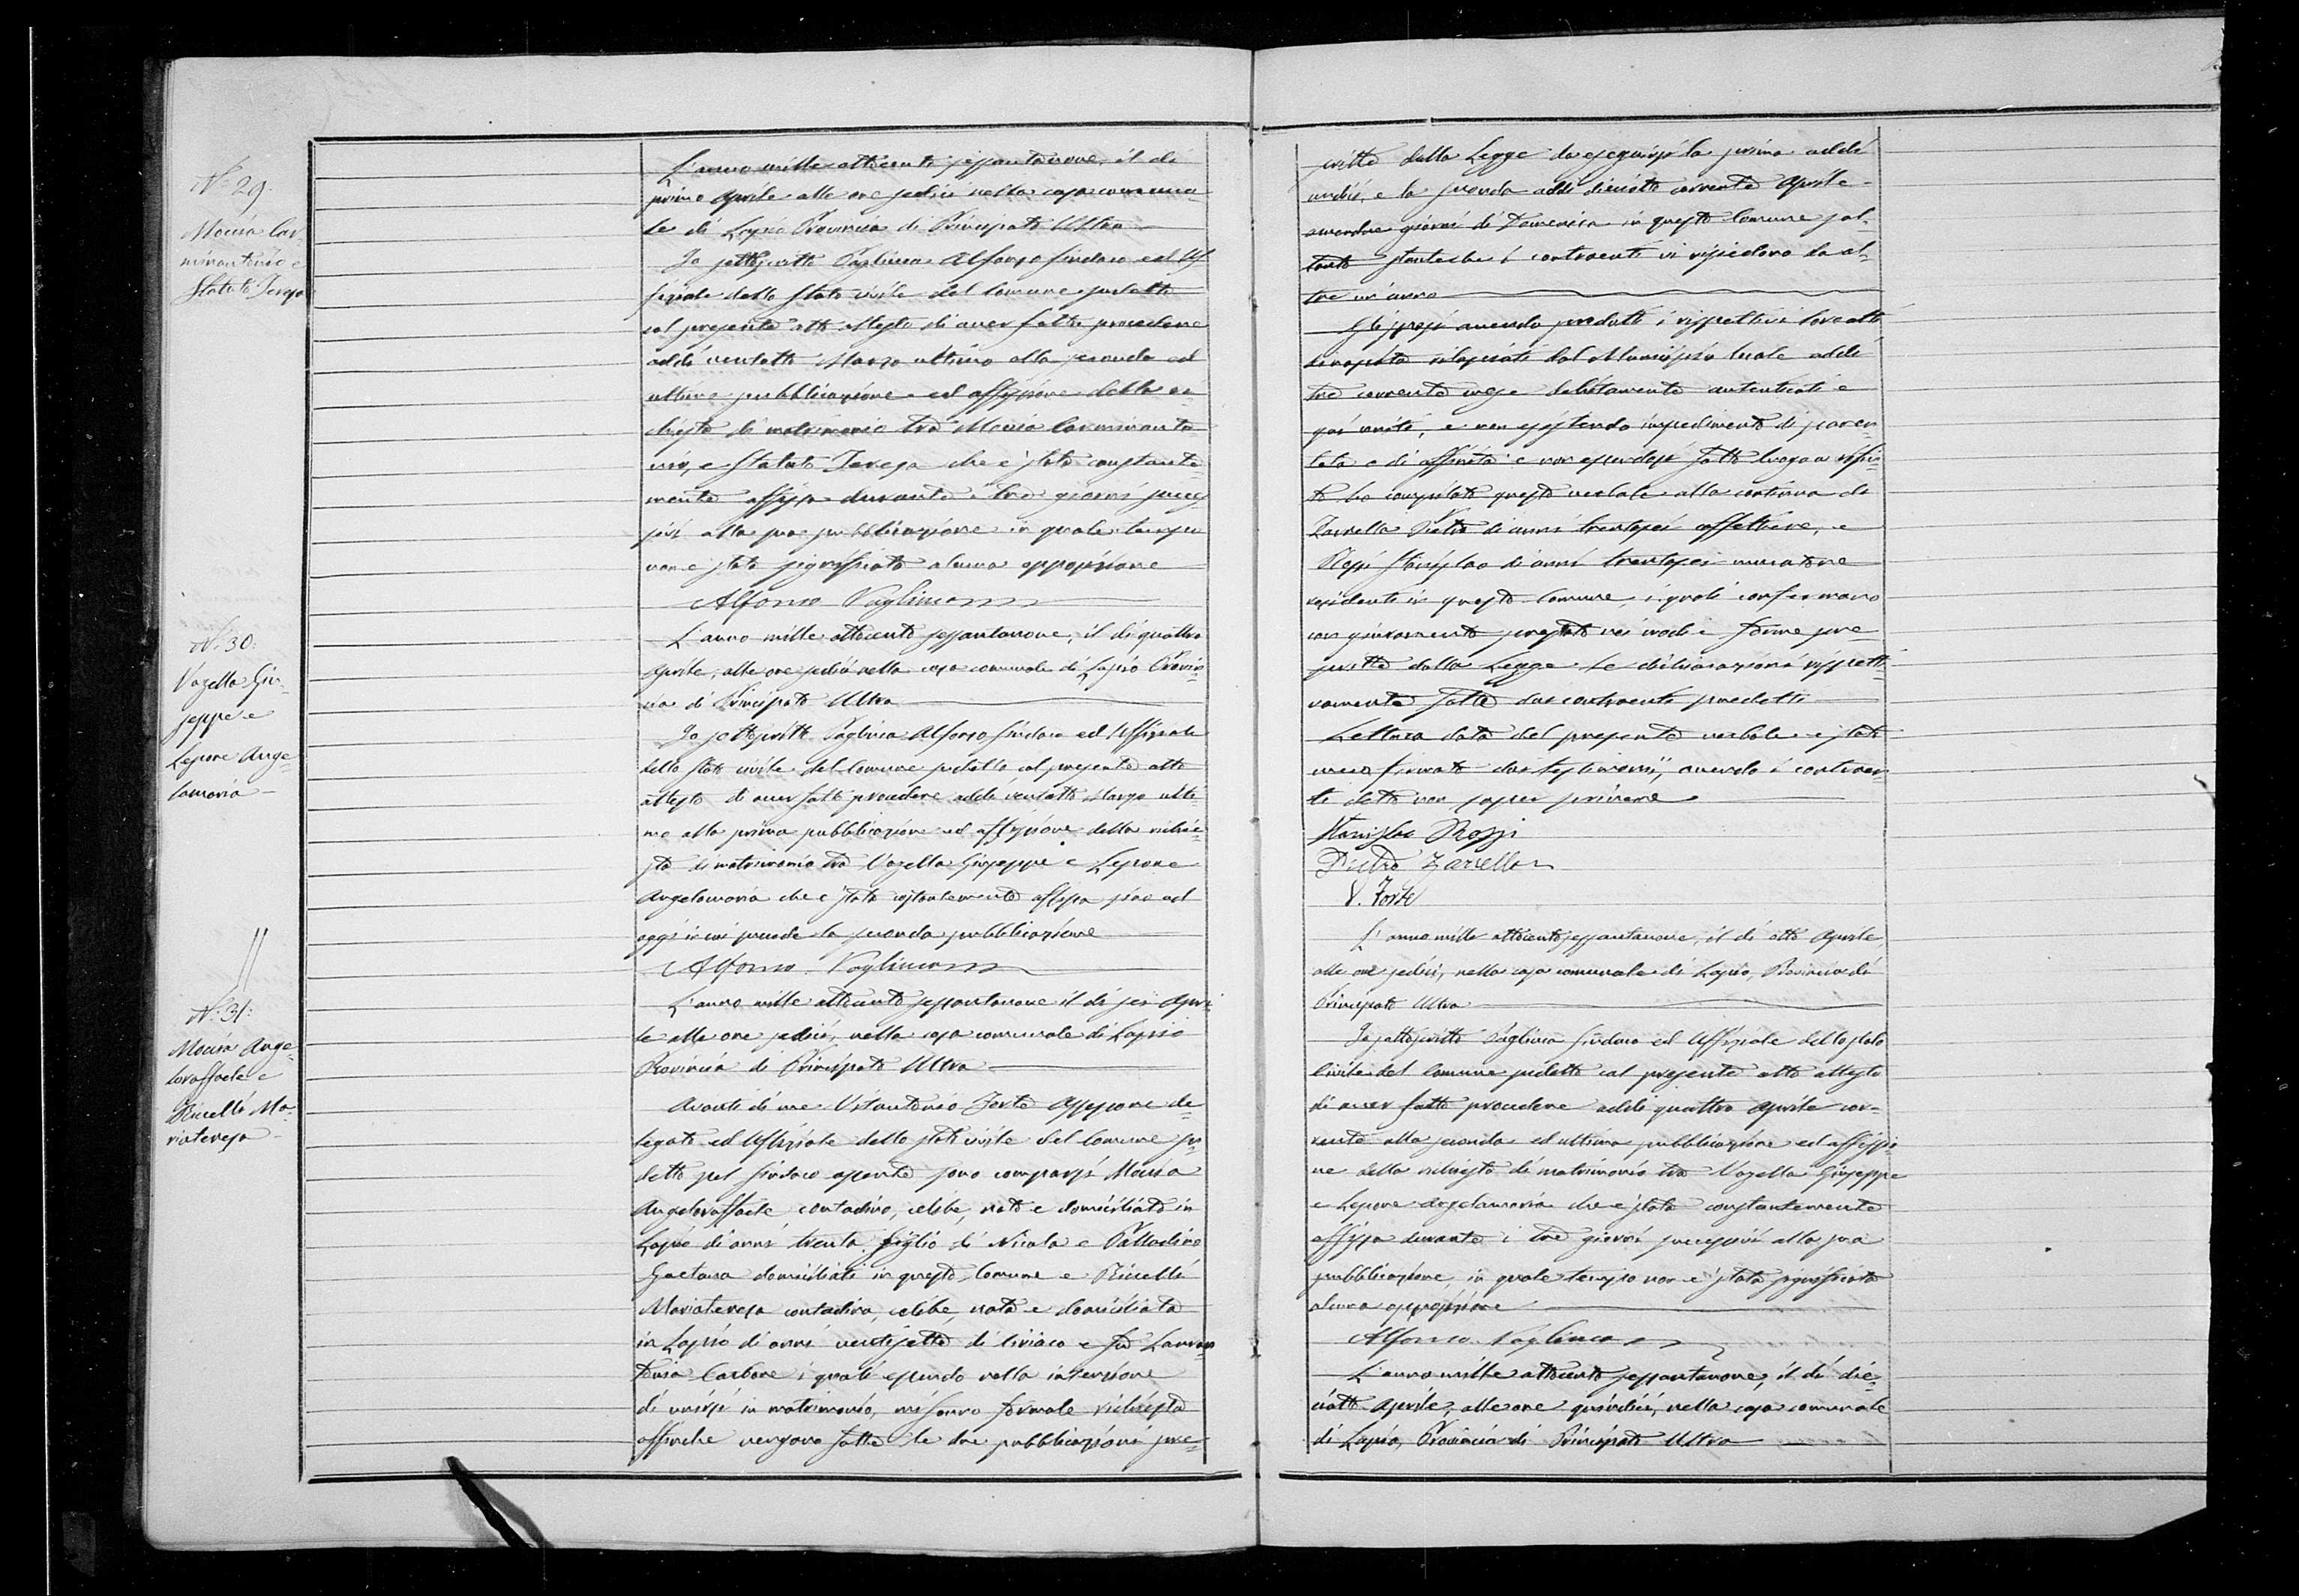 N.º 29.
Mocira Car-
minantonio e
Statuto Teresa
L'anno mille ottocento sessantanove, il dì
primo Aprile alle ore sedici nella casa comuna-
le di Lapio Provincia di Principato Ultra
Io sottoscritto Pagliuca Alfonso Sindaco ed Uf-
fiziale dello Stato civile del Comune sudetto
col presente atto attesto di aver fatto procedere
addì ventotto Marzo ultimo alla seconda ed
ultima pubblicazione ed affissione della ri-
chiesta di matrimonio tra Carminanto-
nio, e Statuto Teresa che è stata constante-
mente affissa durante i tre giorni succes-
sivi alla sua pubblicazione in quale tempo
non è stata significata alcuna opposizione
Alfonso Pagliuca
N.º 30.
Vozella Giu-
seppe e
Lepore Ange-
lamaria
L'anno mille ottocento sessantanove, il dì quattro
Aprile, alle ore sedici nella casa comunale di Lapio Provin-
cia di Principato Ultra
Io sottoscritto Pagliuca Alfonso Sindaco ed Uffiziale
dello Stato civile del Comune sudetto col presente atto
attesto di aver fatto procedere addì ventotto Marzo ulti-
mo alla prima pubblicazione ed affissione della richie-
sta di matrimonio tra Vozella Giuseppe e Lepore
Angelamaria che è stata costantemente affissa sino ad
oggi in cui precede la seconda pubblicazione
Alfonso Pagliuca
N.º 31.
Ange-
loraffaele e
Ma-
riateresa
L'anno mille ottocento sessantanove il dì sei Apri-
le alle ore sedici, nella casa comunale di Lapio
Provincia di Principato Ultra
Avanti di me Vitantonio Forte Assessore de-
legato ed Uffiziale dello stato civile del Comune su-
detto pel Sindaco assente sono comparsi
Angeloraffaele contadino, celibe, nato e domiciliato in
Lapio di anni trenta figlio di Nicola e Palladino
Gaetana domiciliati in questo Comune e
Mariateresa contadina, celibe, nata e domiciliata
in Lapio di anni ventisette di Ciriaco e fu
Carbone i quali essendo nella intenzione
di unirsi in matrimonio, mi fanno formale richiesta
affinche vengano fatte le due pubblicazioni pre-
scritte dalla Legge da eseguirsi la prima addì
undici, e la seconda addì diciotto corrente Aprile
amendue giorni di Domenica in questo Comune sol-
tanto stanteche i contraenti vi risiedono da ol-
tre un'anno
Gli sposi avendo prodotti i rispettivi loro atti
di nascita rilasciati dal Municipio locale addì
tre corrente mese debitamente autenticati e
qui uniti, e non esistendo impedimento di paren-
tela o di affinità e non essendosi fatto luogo a rifiu-
to ho compilato questo verbale alla continua di
Zarrella Pietro di anni trentasei caffettiere, e
Rossi Stanislao di anni trentasei muratore
residenti in questo Comune, i quali confermano
con giuramento prestato nei modi e forme pre-
scritte dalla Legge le dichiarazioni rispetti-
vamente fatte dai contraenti sudetti
Lettura data del presente verbale è stato
meco firmato dai testimoni, avendo i contraen-
ti detto non saper scrivere
Stanislao Rossi
Pietro Zarrella
V. Forte
L'anno mille ottocento sessantanove, il dì otto Aprile,
alle ore sedici, nella casa comunale di Lapio, Provincia di
Principato Ultra
Io sottoscritto Pagliuca Sindaco ed Uffiziale dello stato
Civile del Comune sudetto col presente atto attesto
di aver fatto procedere addì quattro Aprile cor-
rente alla seconda ed ultima pubblicazione ed affissio-
ne della richiesta di matrimonio tra Vozella Giuseppe
e Lepore Angelamaria che è stata constantemente
affissa durante i tre giorni successivi alla sua
pubblicazione, in quale tempo non è stata significata
alcuna opposizione
Alfonso Pagliuca
L'anno mille ottocento sessantanove, il dì die-
ciotto Aprile, alle ore quindici, nella casa comunale
di Lapio, Provincia di Principato Ultra